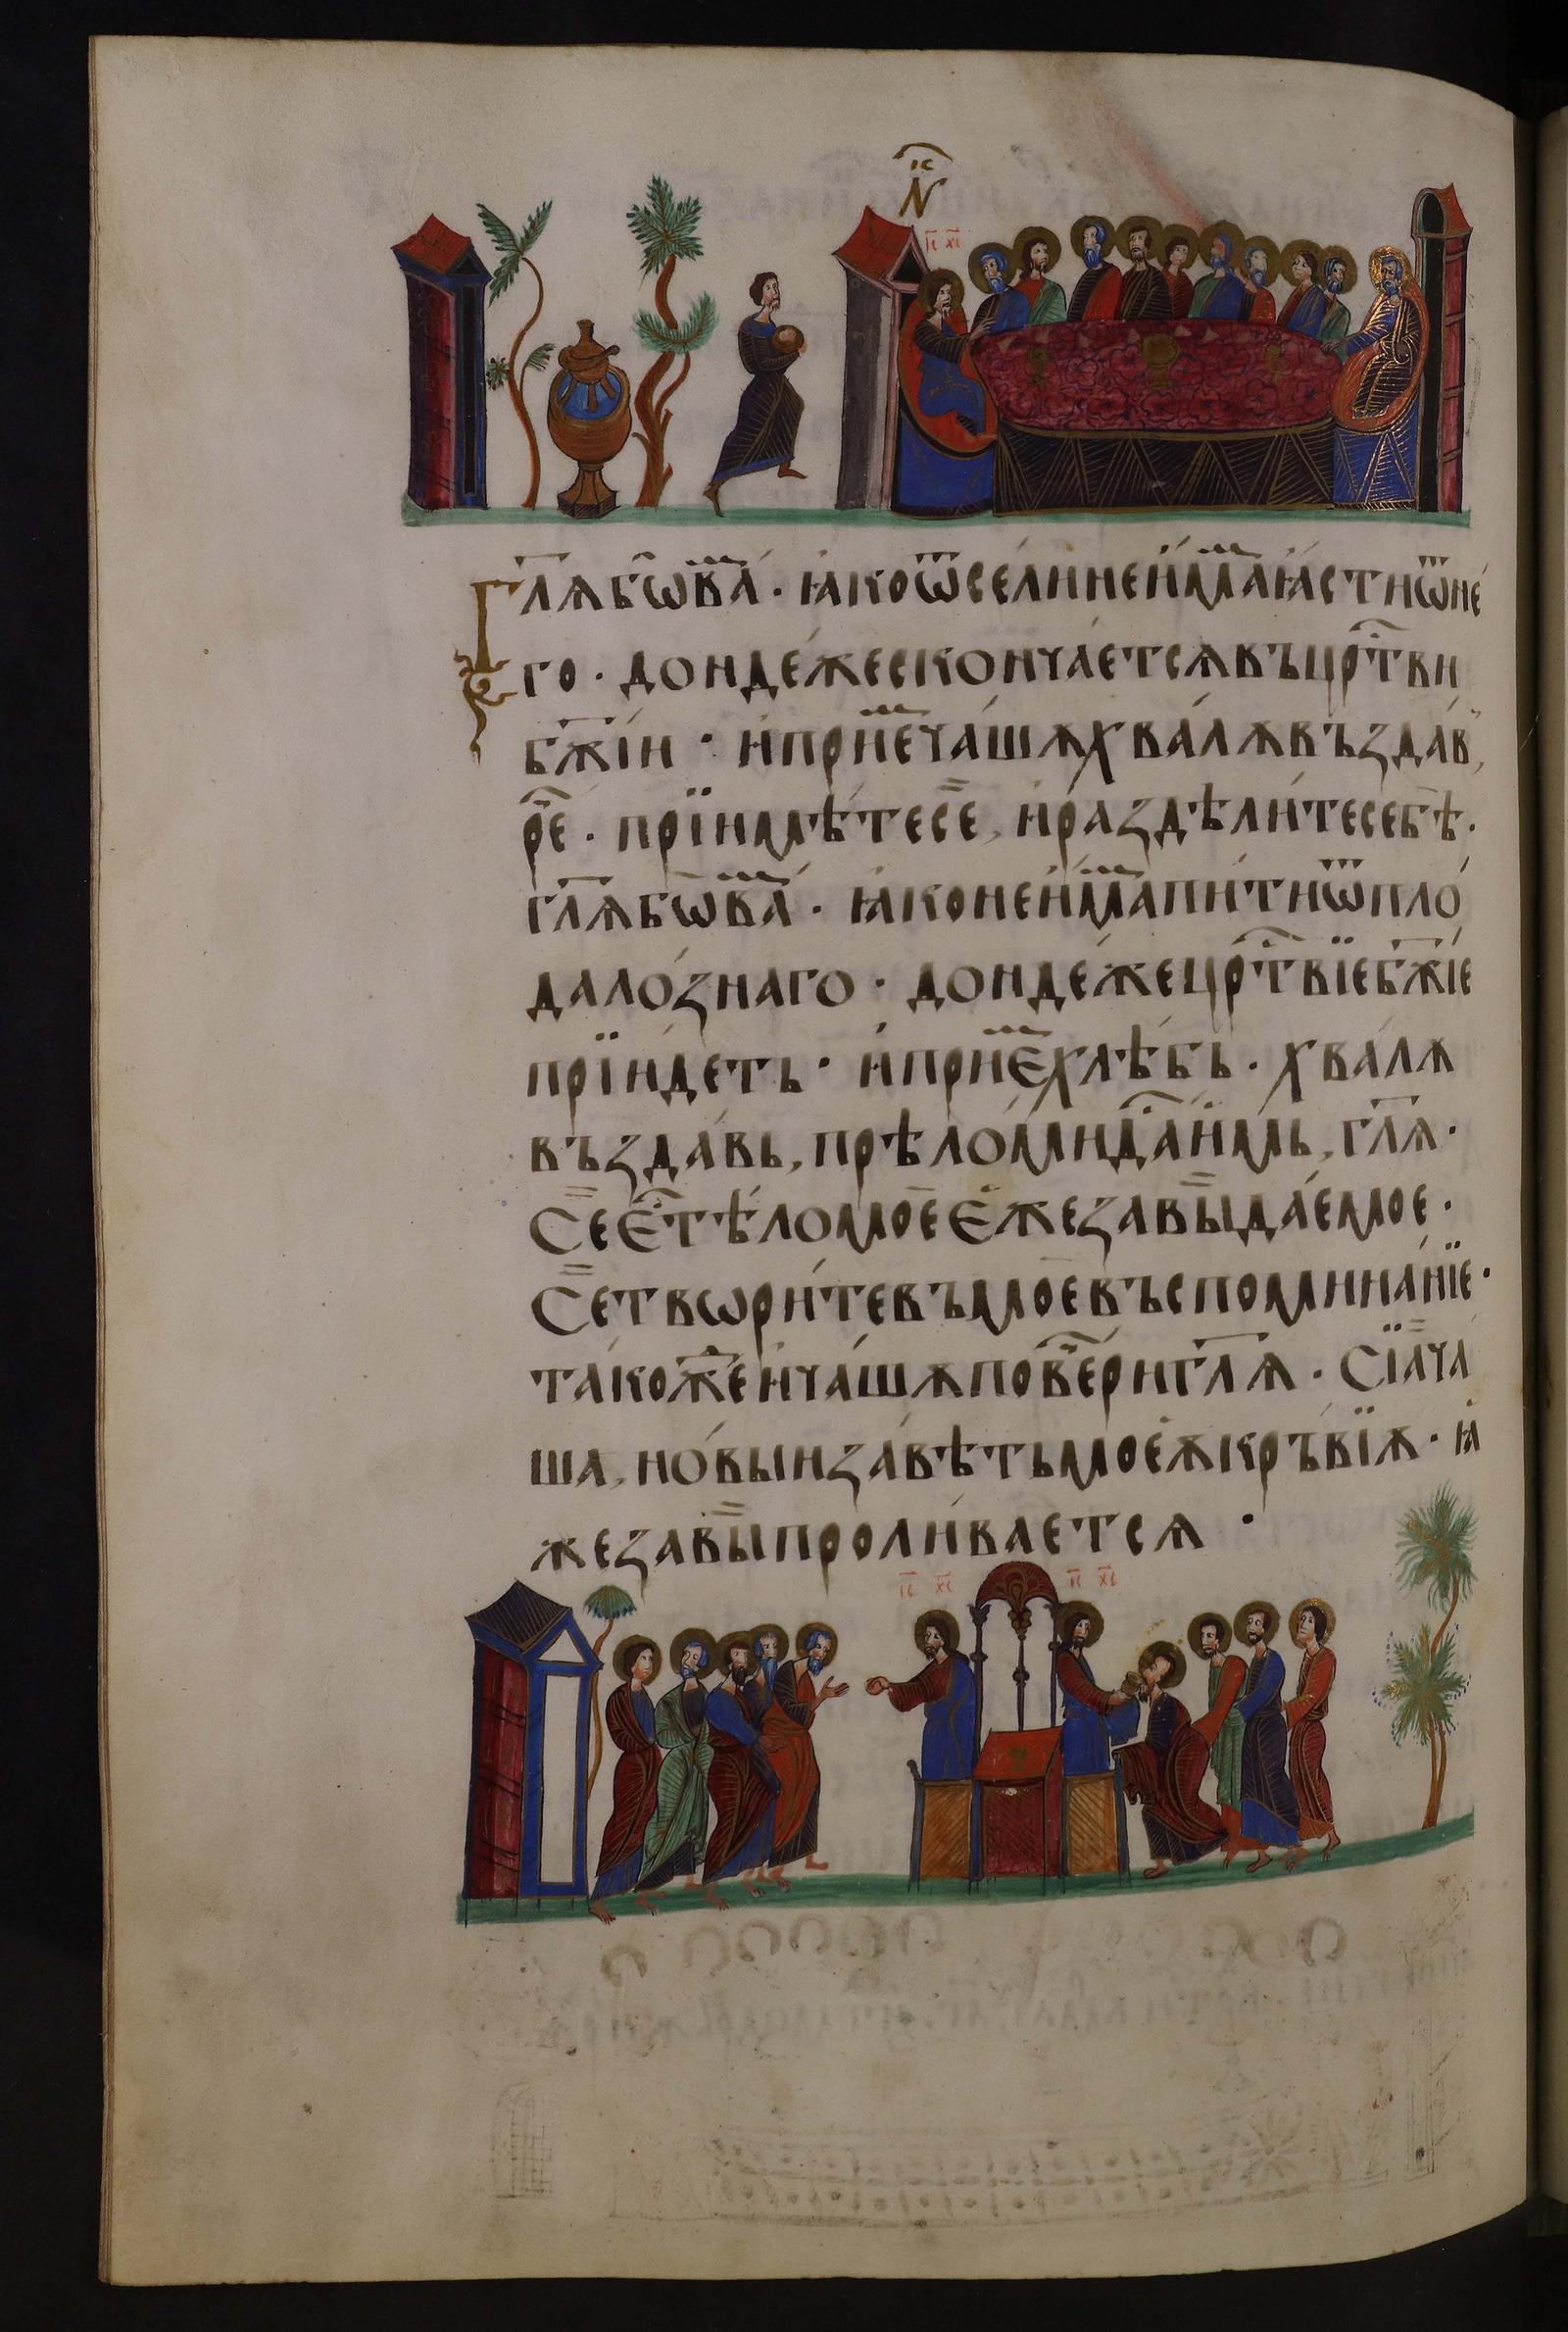 іс
N
іс хс
глѫ бѡ ва҄м · ꙗко ѿселѝ не и҆мамь ꙗсти ѿ не
го · дондеже сконча́етсѧ въ црⷭ҇тви
бж҃іи · и҆ прїе́мь ча́шѫ хвалѫ въздав,
рⷱ҇е · прїимѣте сѐ, и҆ раздѣли́те себѣ ·
глѫ бѡ ва́мь · ꙗко не и҆мамь пи́ти ѿ пло
да ло́знаго · дондеже црⷭ҇твїе бж҃їе
прїидеть · и҆ прїе́мь хлѣбь · хвалѫ
въздавь, прѣломи и҆ дас́ть и҆мь, глѧ ·
Се е҆сть тѣло мое е҆же за вы̀ даемое ·
Се твори́те въ мое въспомина́нїе ·
та́кожⷣе и҆ ча́шѫ по ве́чери глѧ · Сїа ча
ша, но́выи завѣть моеѫ кръвїѫ · ꙗ
же за вы̀ проли́ваетсѧ ·
іс хс іс хс